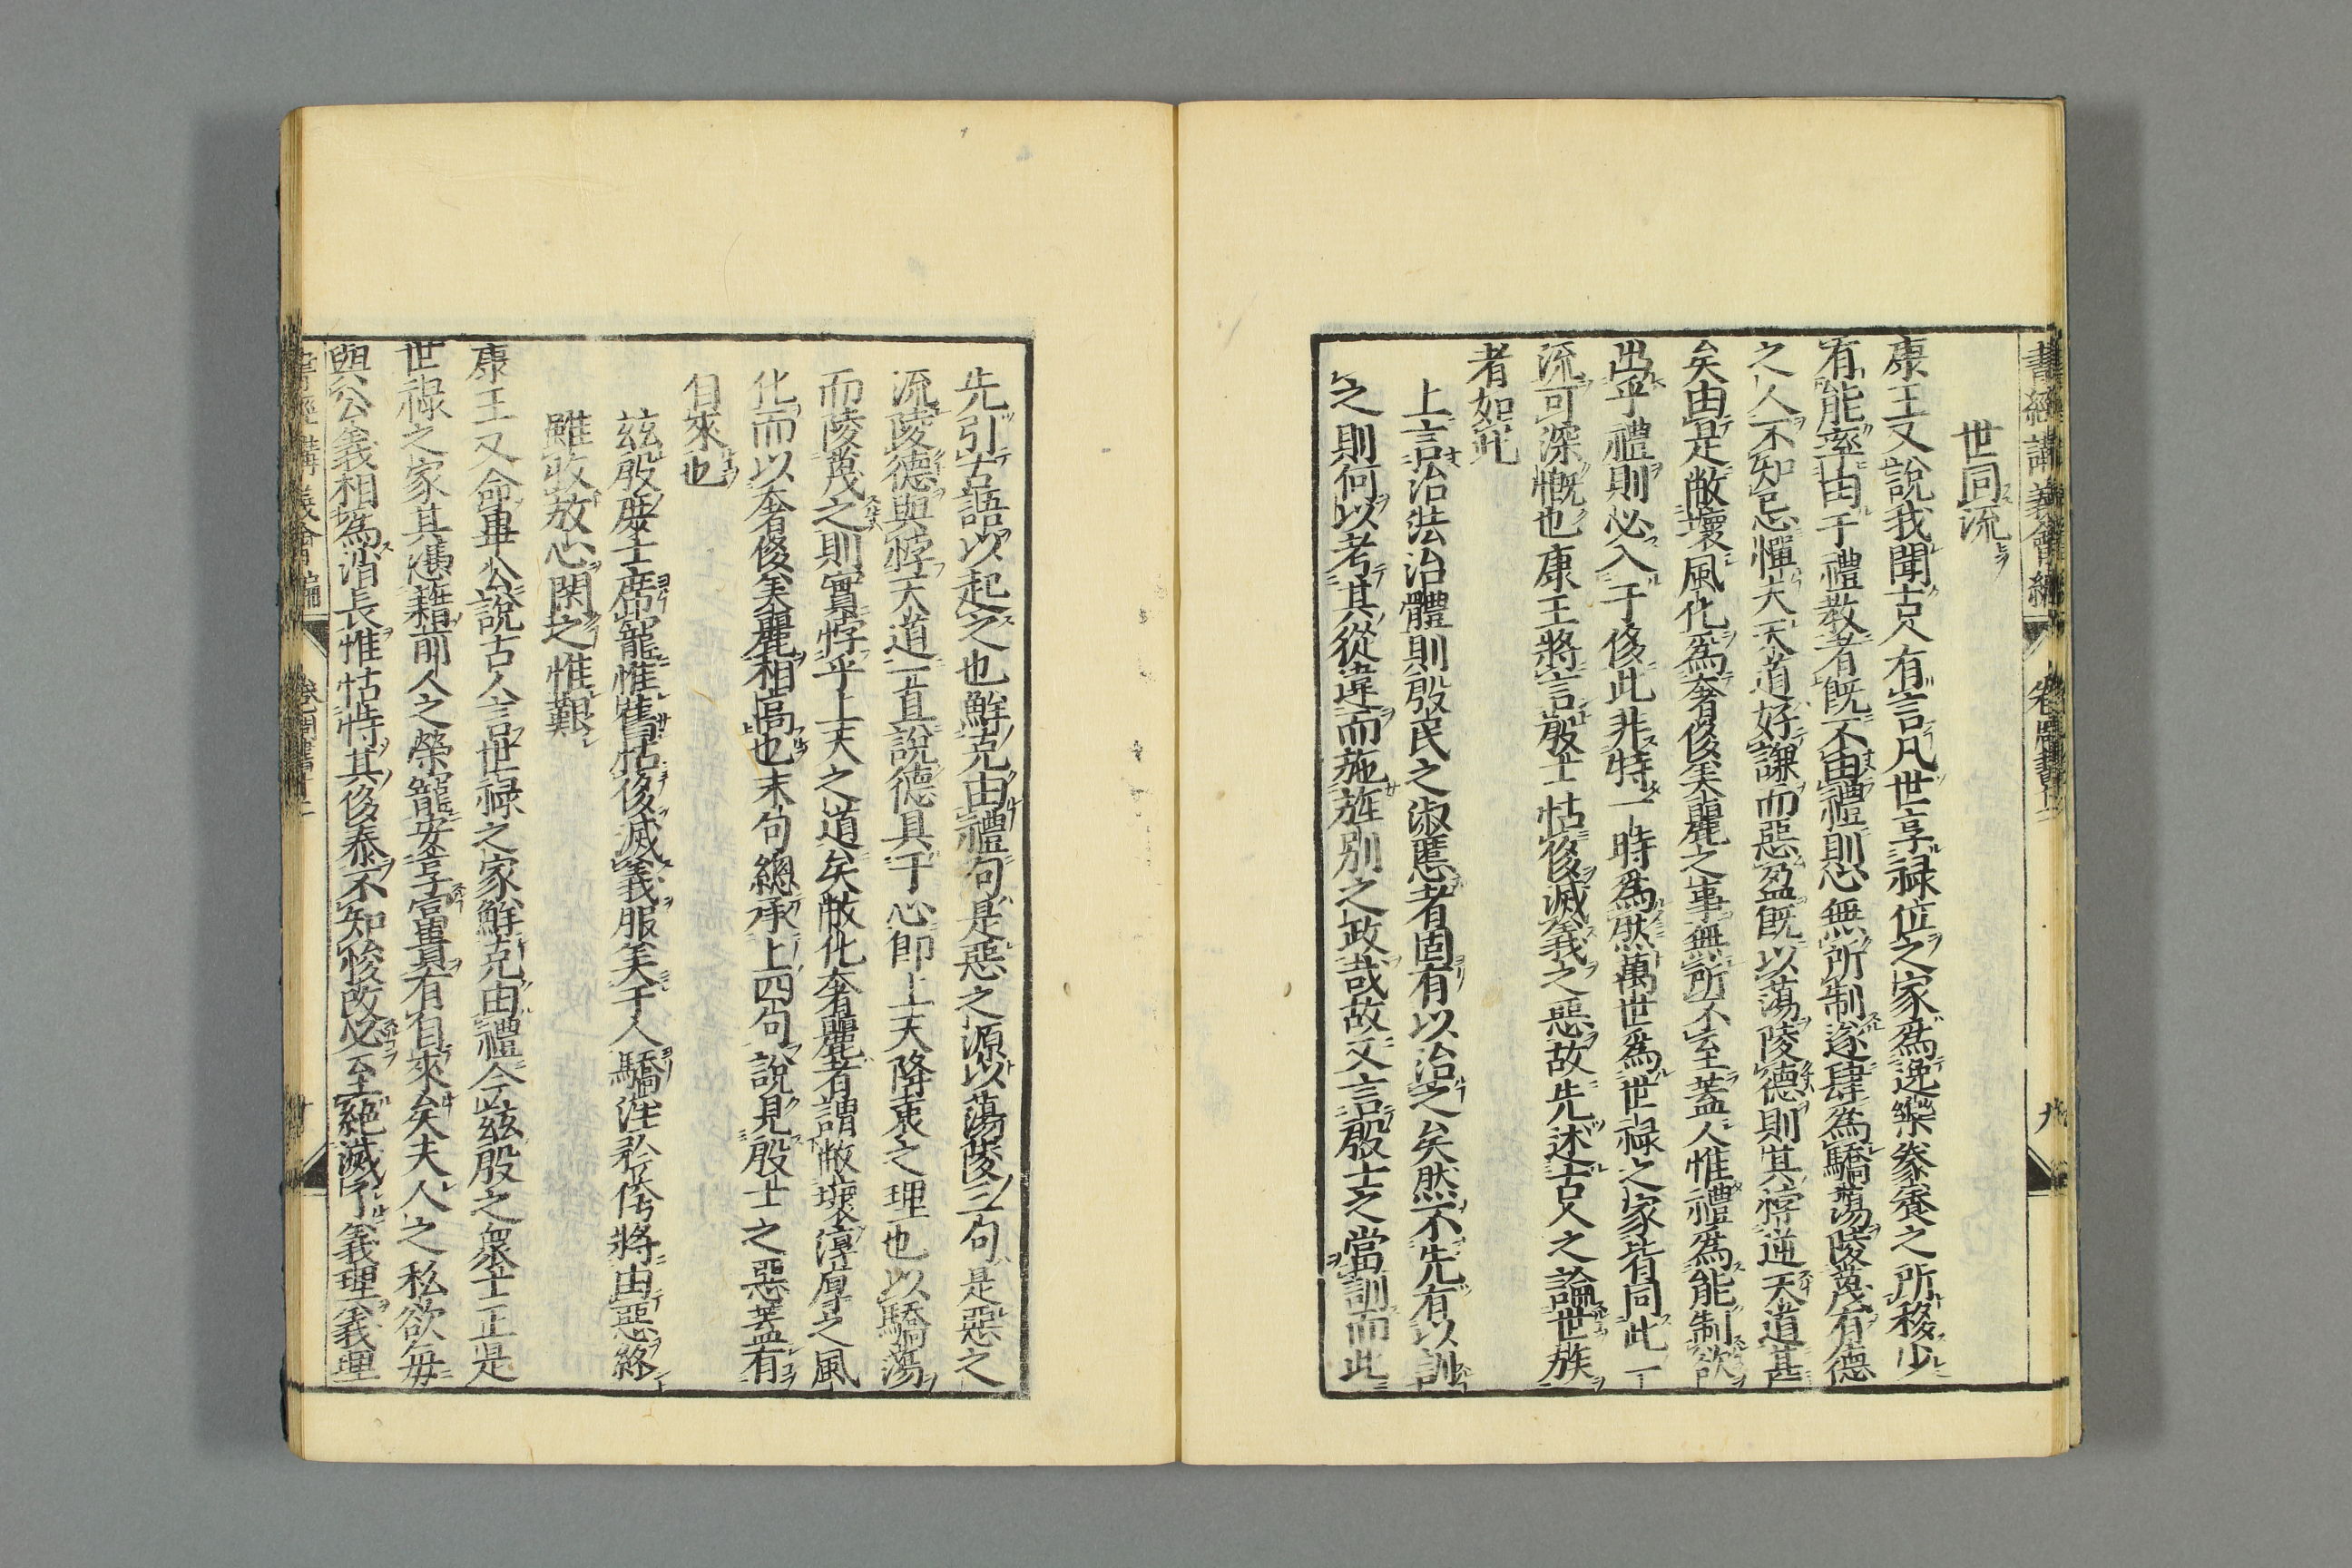 書經講義會編 卷 周書十二 九
世同流
康王又說我聞古人有言凡世享祿位之家爲逸樂豢養之所移少
有能率由于禮教者既不由禮則心無所制遂肆爲驕蕩陵蔑有德
之人不知忌憚夫天道好謙而惡盈既以蕩陵德則其悖逆天道甚
矣由是敝壞風化爲奢侈美麗之事無所不至蓋人惟禮爲能制欲
出乎禮則必入于侈此非特一時爲然萬世爲世祿之家皆同此一
流可深慨也康王將言殷士怙侈滅義之惡故先述古人之論世族
者如此
上言治法治體則殷民之淑慝者固有以治之矣然不先有以訓
之則何以考其從違而施旌別之政哉故又言殷士之當訓而此
先引古語以起之也鮮克由禮句是惡之源以蕩陵三句是惡之
流陵德與悖天道一直說德具于心即上天降衷之理也以驕蕩
而陵蔑之則實悖乎上天之道矣敝化奢麗者謂敝壞淳厚之風
化而以奢侈美麗相高也末句總承上四句說見殷士之惡蓋有
自來也
茲殷庶士席寵惟舊怙侈滅義服美于人驕淫矜侉將由惡終
雖收放心閑之惟艱
康王又命畢公說古人言世祿之家鮮克由禮今茲殷之衆士正是
世祿之家其憑藉前人之榮寵安享富貴有自來矣夫人之私欲每
與公義相爲消長惟怙恃其侈泰不知悛改必至絕滅了義理義理
書經講義會編 卷 周書十二 十